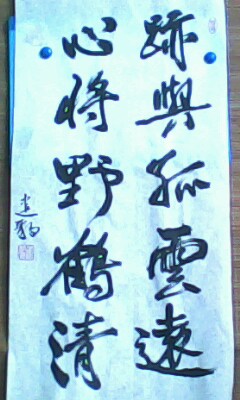 跡與孤雲遠
心將野鶴清